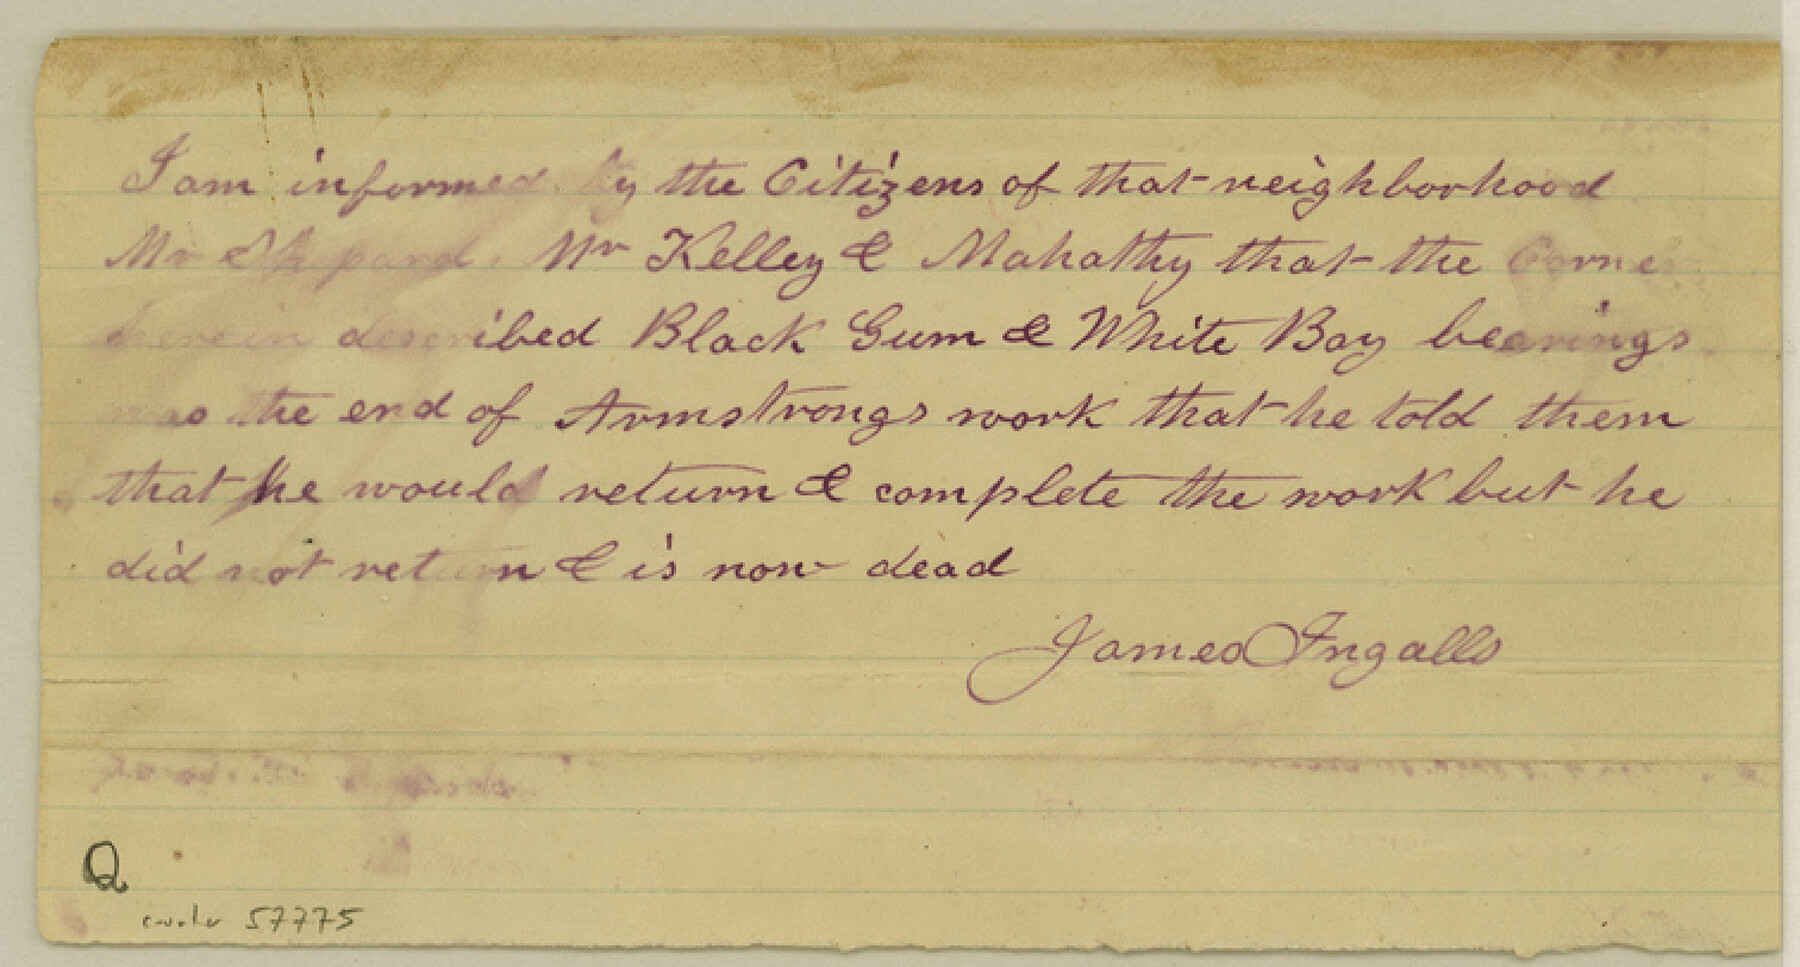 I am informed by the Citizens of that neighborhood
Mr Shepard, Mr Kelley & Mahathy that the Corner
herein described Black Gum & White Bay bearings
was the end of Armstrongs work that he told them
that he would return & complete the work but he
did not return & is now dead
James Ingalls
Q
counter 57775